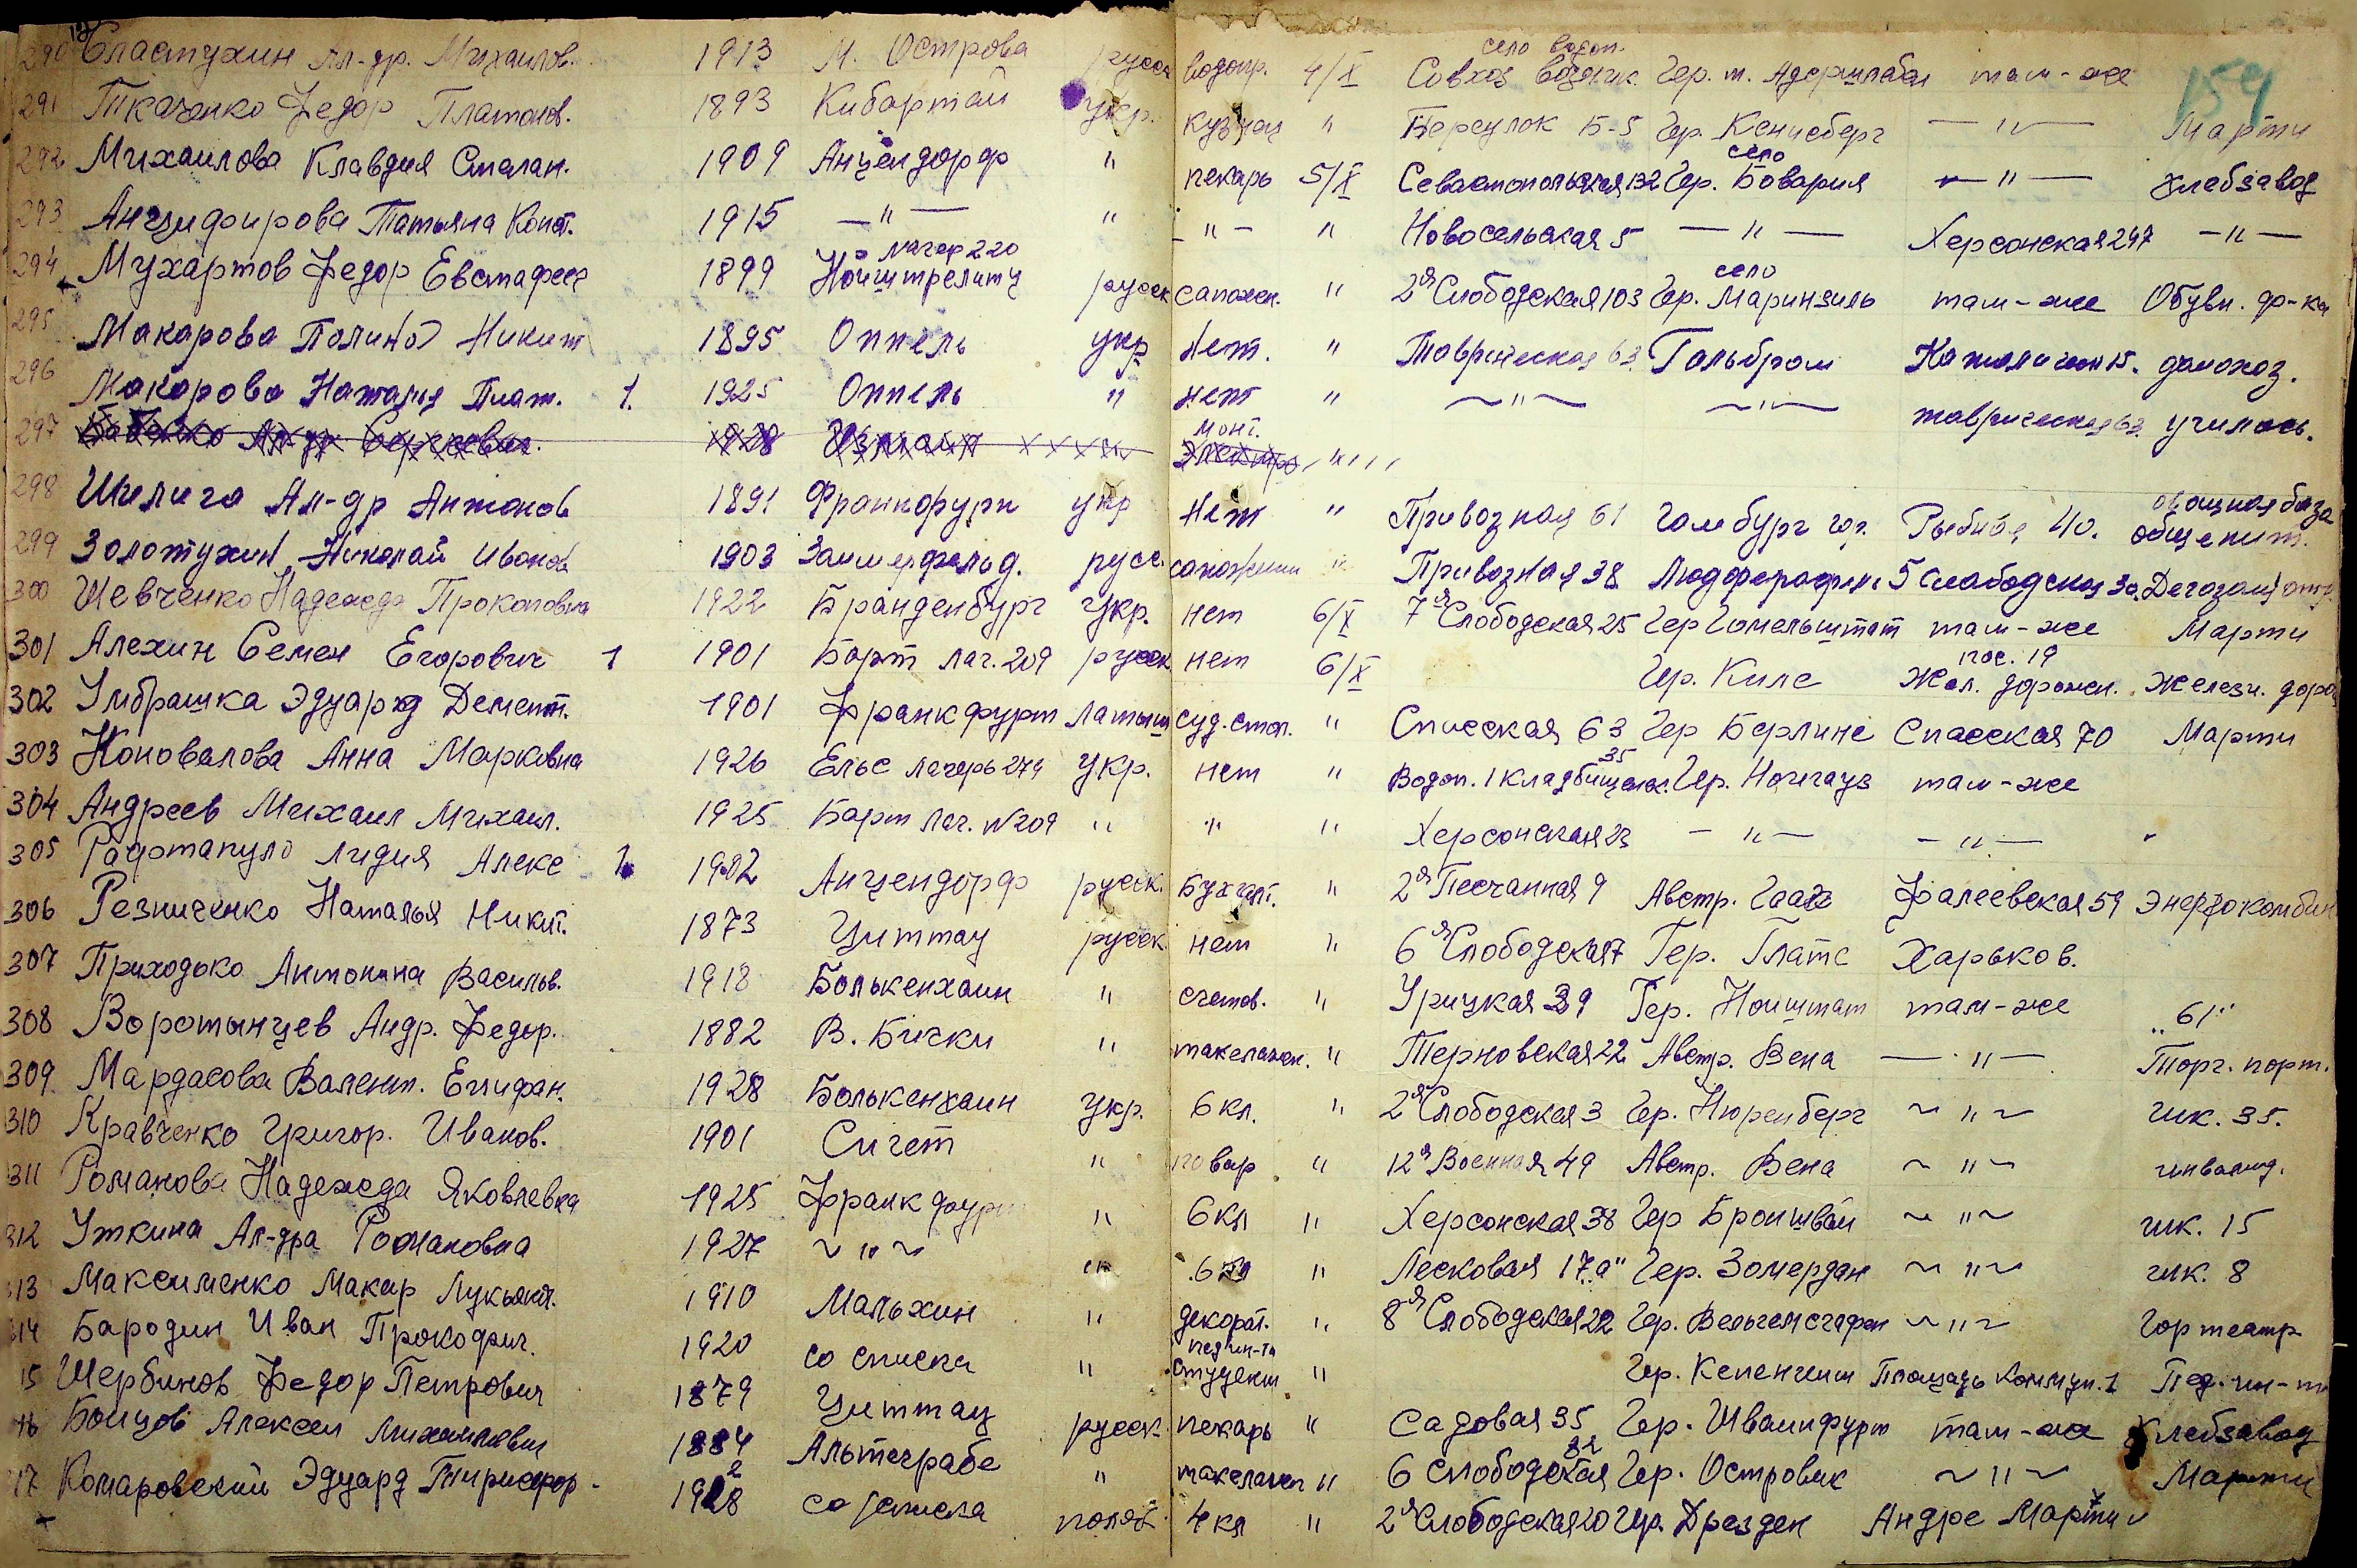 154
290 Сластухин Ал-др. Михаилов. 1913 М. Острова русск водопр. 4/X Совхоз село водоп. Гер. т. там-же
291 Ткаченко Федор Платонов. 1893 Кибартай укр. кузнец " Переулок Б-5 Гер. Кенисберг —"— Марти
292 Михаилова Клавдия Степан. 1909 Анцендорф " пекарь 5/X Севастопольская 132 Гер. село Бовария —"— хлебзавод
293 Анцифирова Татьяна Конст. 1915 —"— " —"— " Новосельская 5 —"— Херсонская 247 —"—
294 Мухартов Федор Евстафее 1899 лагер 220 Ноиштрелитц русск сапожн. " 2я Слободская 103 Гер. село Маринзиль там-же Обувн. ф-ка
295 Макарова Полина Никит 1895 Оппель укр нет. " Таврическая 63 Гальбром 15. домохоз.
296 Макарова Наталья Плат. 1. 1925 Оппель " нет " ~"~ ~"~ таврическая 63 училась.
297 Ал-др Сергеевич. 1928 Измаил монт. электро "
298 Шелига Ал-др Антонов 1891 Франкфурт укр нет " Привозная 61 Гамбург гор. Рыбная 40. овощная база общепит.
299 Золотухин Николай Иванов 1903 Заимерфельд. русс. сапожник " Привозная 38 5 Слабодская 30.
300 Шевченко Надежда Прокоповна 1922 Бранденбург укр. нет 6/X 7я Слободская 25 Гер Гомельштат там-же Марти
301 Алехин Семен Егорович 1 1901 Барт лаг. 209 русск нет 6/X Гер. Киле пос. 19 Жел. дорожн. Железн. доро
302 Умбрашка Эдуард Демент. 1901 Франкфурт латыш суд. стол. " Спасская 63 Гер Берлине Спасская 70 Марти
303 Коновалова Анна Марковна 1926 Ельс лагерь 279 укр. нет " Водоп. 1 Кладбищенск. 35 Гер. Ноигауз там-же
304 Андреев Михаил Михаил. 1925 Барт лаг. №209 " " " Херсонская 23 —"— —"—
305 Рафтапуло Лидия Алекс 1. 1902 Анцендорф русск. Бухгалт. " 2я Песчанная 9 Австр. Гаас Фалеевская 59 Энергокомбин
306 Резниченко Наталья Никит. 1873 Циттау русск. нет " 6я Слободская 7 Гер. Глатс Харьков.
307 Приходько Антонина Васильв. 1918 Болькенхаин " счетов. " Урицкая 39 Гер. Ноиштат там-же „61"
308 Воротынцев Андр. Федор. 1882 В. Бички " такелажн. " Терновская 22 Австр. Вена —"— Торг. порт.
309 Мардасова Валент. Епифан. 1928 Болькенхаин укр. 6 кл. " 2я Слободская 3 Гер. Нюренберг ~"~ шк. 35.
310 Кравченко Григор. Иванов. 1901 Сигет " повар " 12я Военная 49 Австр. Вена ~"~ инвалид.
311 Романова Надежда Яковлевна 1925 Франкфурт " 6 кл " Херсонская 38 Гер Броншваи ~"~ шк. 15
312 Уткина Ал-дра Романовна 1927 ~"~ " 6 кл " Лесковая 17„а" Гер. Зомердан ~"~ шк. 8
313 Максименко Макар Лукьян. 1910 Мальхин " декорат. " 8я Слободская 22 Гер. ~"~ Гор театр
314 Бародин Иван Прокофич. 1920 со списка " пед ин-та студент " Гер. Кепенгиш Площадь Коммун. 1 Пед. ин-т
15 Щербинов Федор Петрович 1879 Циттау русск. пекарь " Садовая 35 Гер. Шваинфурт там-же Хлебзавод
16 Боицов Алексеи Михаилович 1884 Альтеграбе " такелажн " 6 Слободская 32 Гер. Островик ~"~ Марти
17 Комаровский Эдуард 1928 со списка поляк 4 кл " 2я Слободская 20 Гер. Дрезден Андре Марти